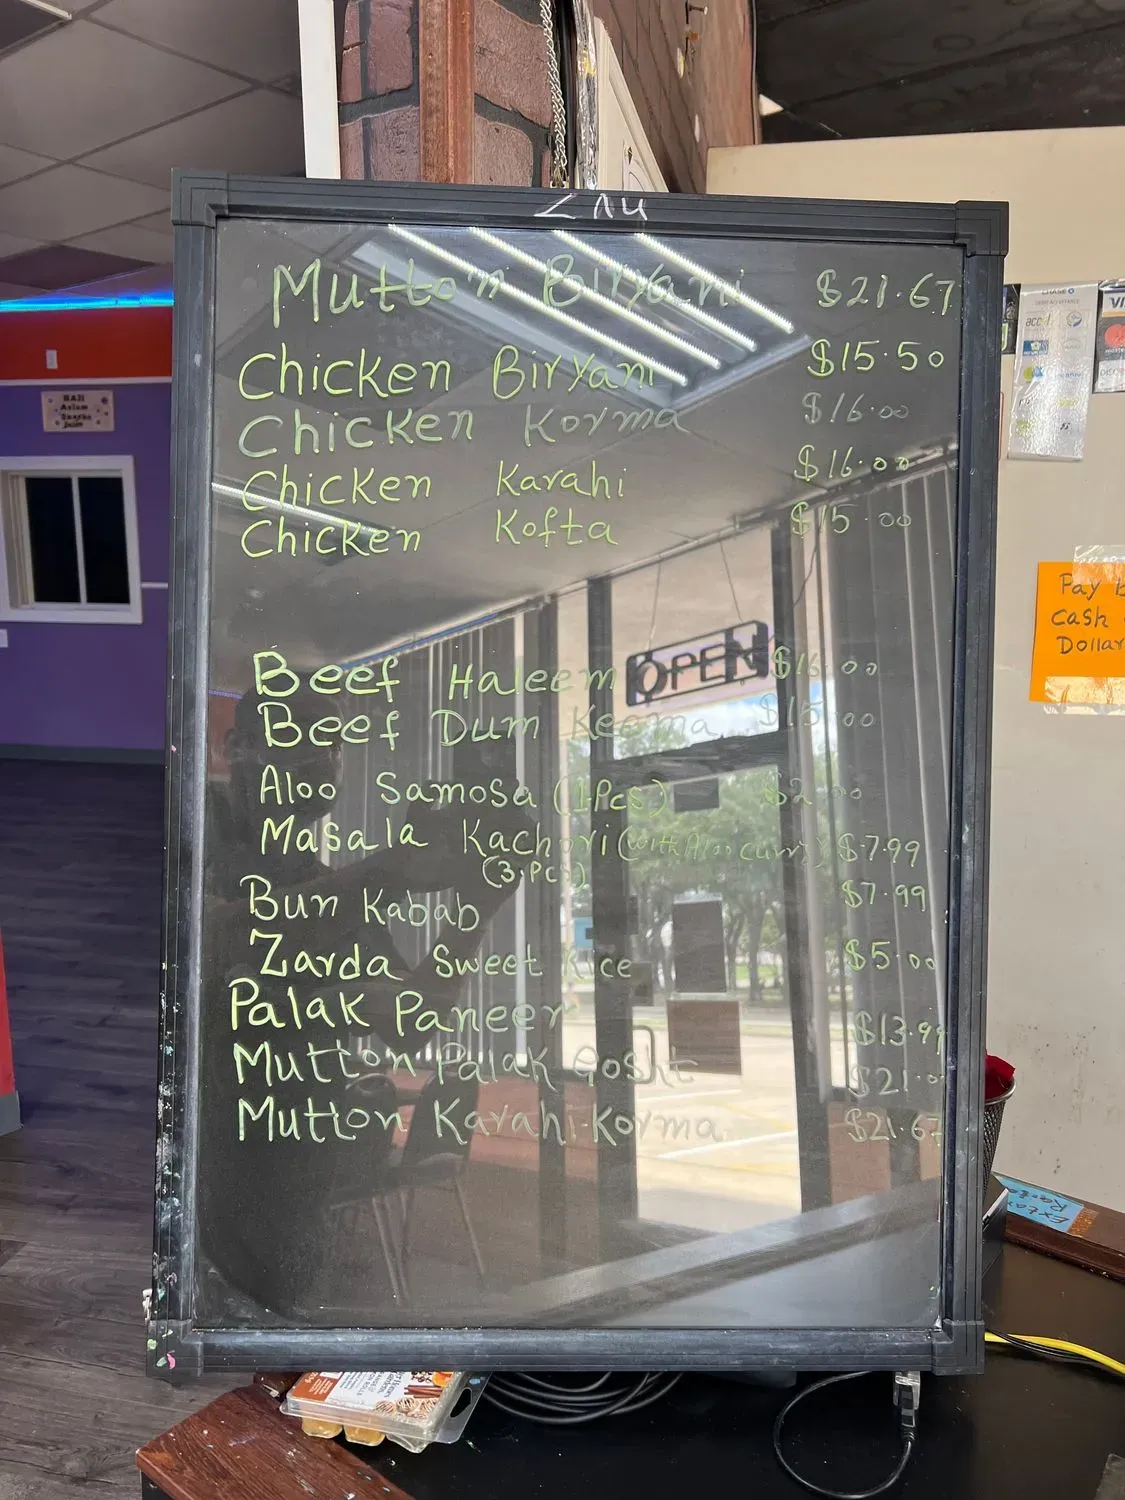 Mutton Biryani $21.67
Chicken Biryani $15.50
Chicken Korma $16.00
Chicken Karahi $16.00
Chicken Kofta $15.00
Beef Haleem $16.00
OPEN
Beef Dum Keema $15.00
Aloo Samosa (1Pcs) $2.00
Masala Kachori (with Aloo curry) $7.99
(3.Pcs)
Bun Kabab $7.99
Zarda Sweet Rice $5.00
Palak Paneer $13.99
Mutton Palak Gosht $21.0
Mutton Karahi.Korma $21.67
CHASE
VI
Pay
Cash
Dollar
Extra